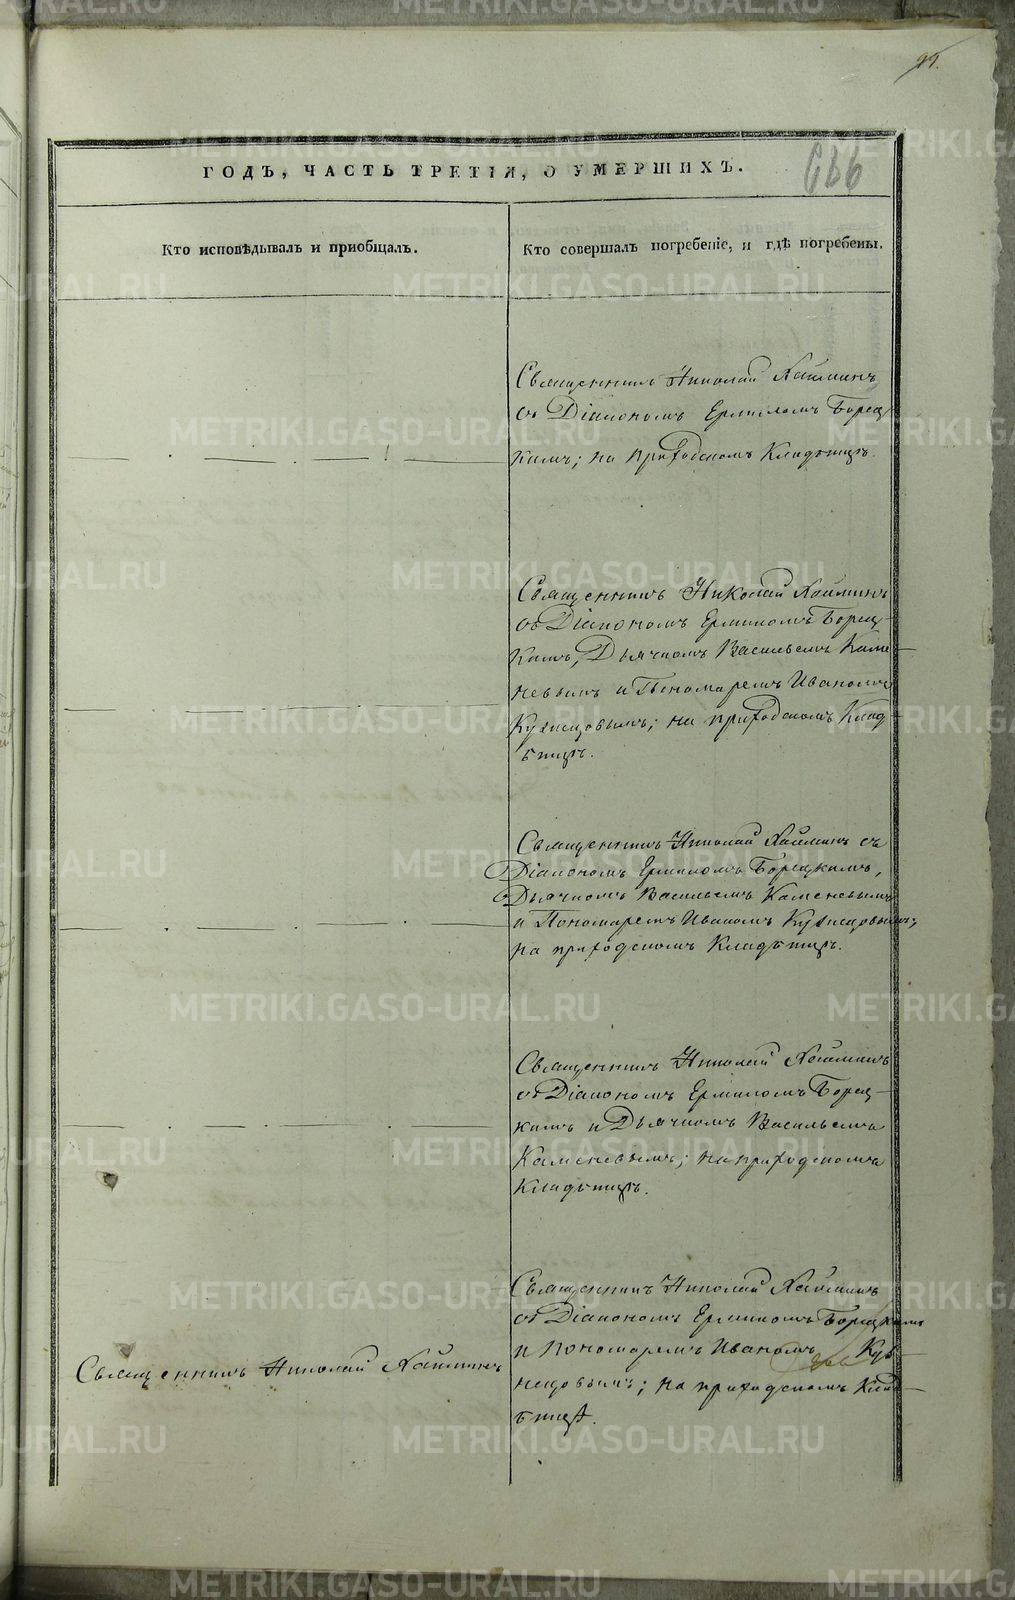 99.
ГОДЪ, ЧАСТЬ ТРЕТІЯ, О УМЕРШИХЪ.
666
Кто исповѣдывалъ и приобщалъ.
Кто совершалъ погребеніе, и гдѣ погребены.
Священникъ Николай Хайминъ
съ Діакономъ Ермиломъ Борец
кимъ; на приходскомъ Кладбищѣ.
Священникъ Николай Хайминъ
съ Діакономъ Ермиломъ Борец-
кимъ, Дьячкомъ Васильемъ Каме-
невымъ и Пономаремъ Иваномъ
Кузнецовымъ; на приходскомъ Клад-
бищѣ.
Священникъ Николай Хайминъ съ
Діакономъ Ермиломъ Борецкимъ,
Дьячкомъ Васильемъ Каменевымъ
и Пономаремъ Иваномъ Кузнецовымъ;
на приходскомъ Кладбищѣ.
Священникъ Николай Хайминъ
съ Діакономъ Ермиломъ Борец-
кимъ и Дьячкомъ Васильемъ
Каменевымъ; на приходскомъ
Кладбищѣ.
Священникъ Николай Хайминъ
Священникъ Николай Хайминъ
съ Діакономъ Ермиломъ Борецкимъ
и Пономаремъ Иваномъ Куз-
нецовымъ; на приходскомъ Клад-
бищѣ.
METRIKI.GASO-URAL.RU